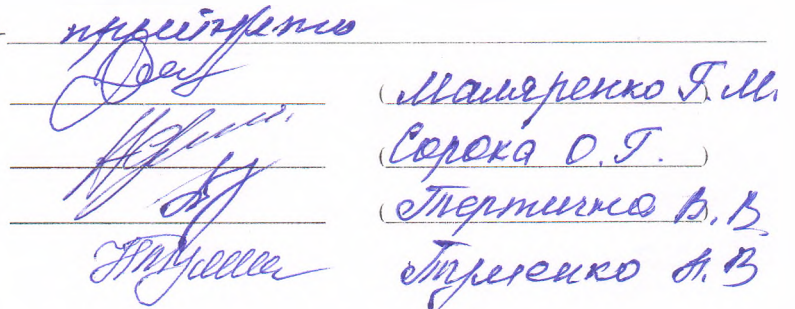 прийнято
(Маляренко Г.М.
(Сорока О.Г.)
(Тертична В.В
Туменко Н.В